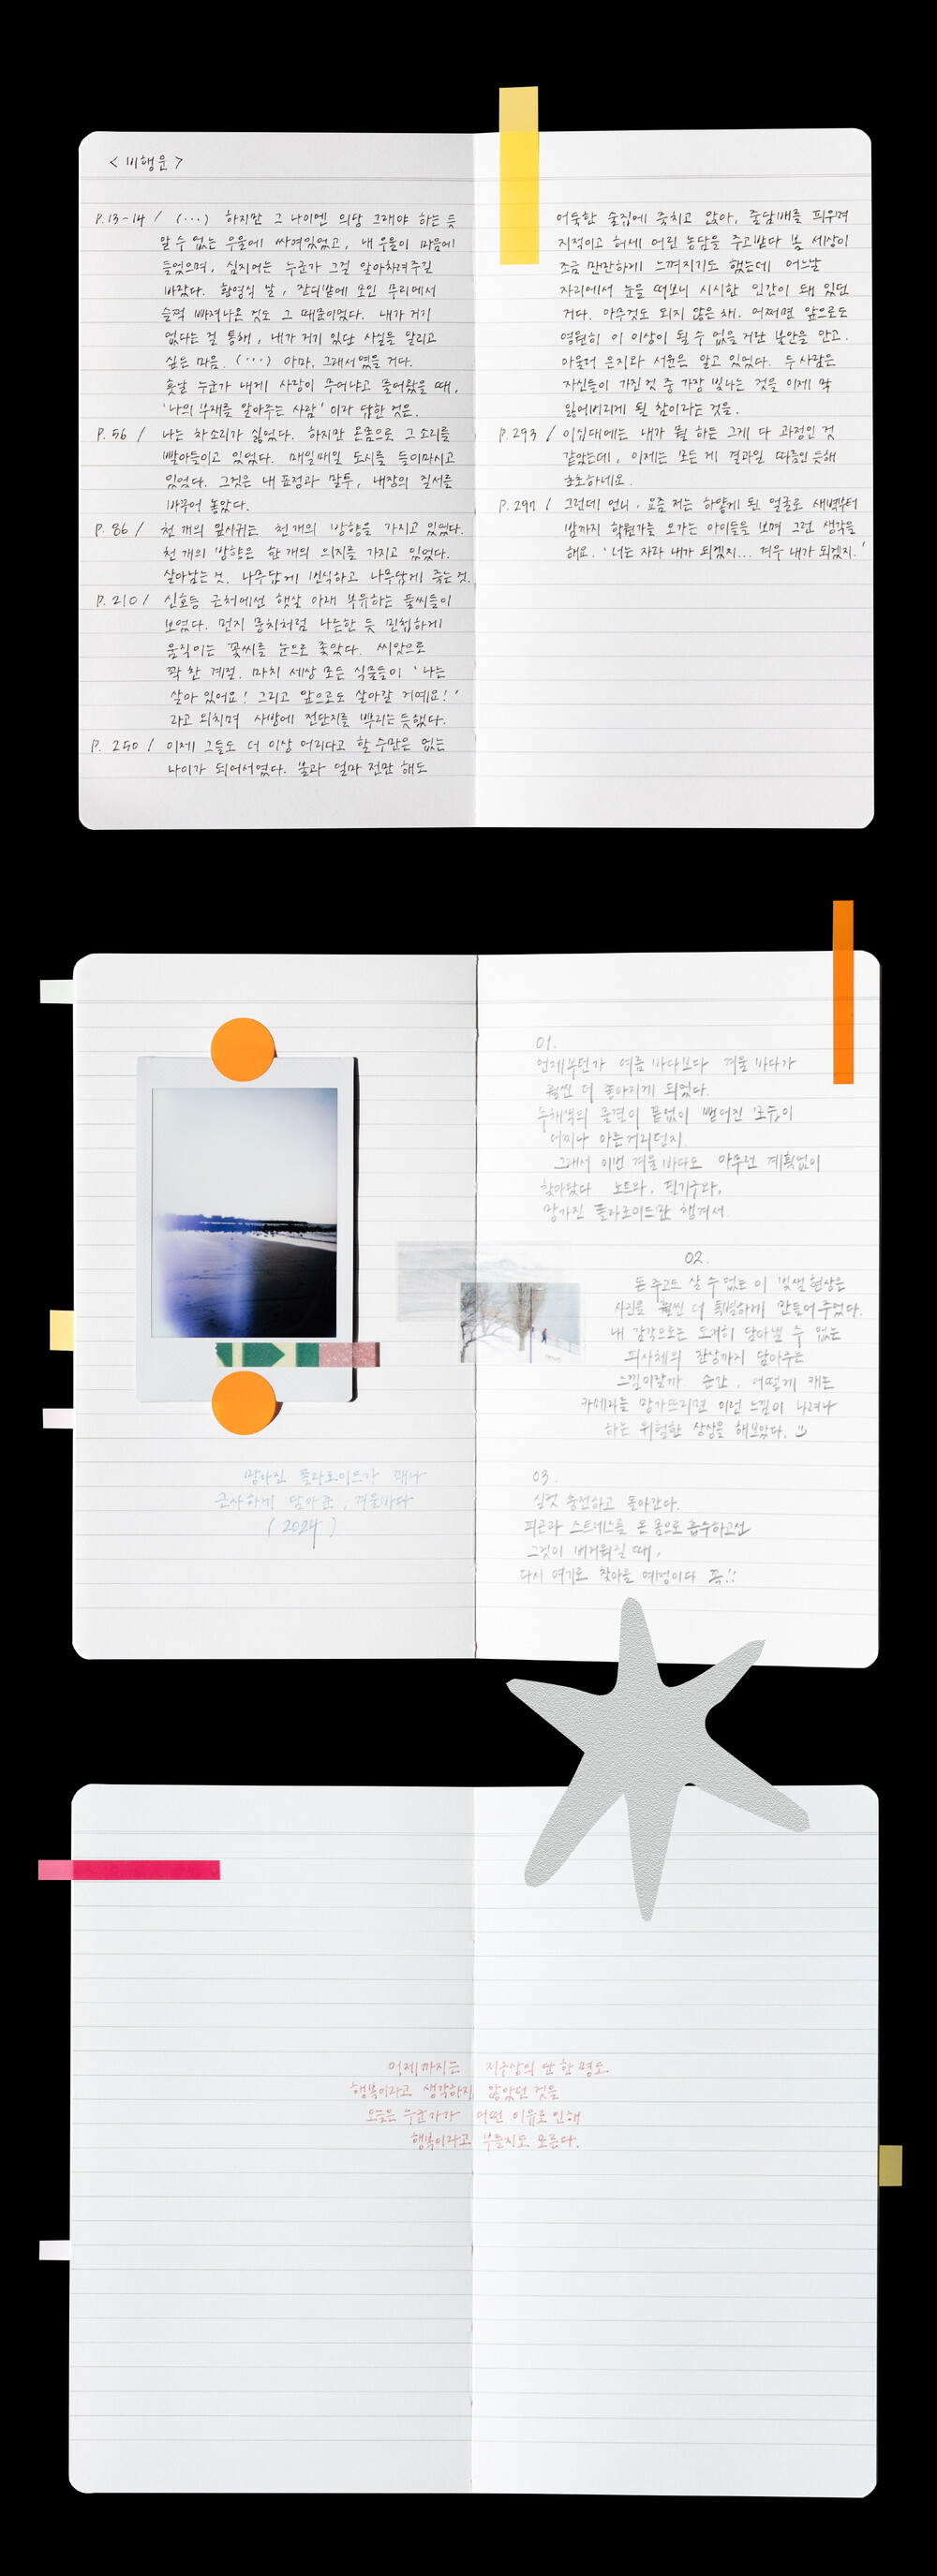 < 비행운 >
P.13-14 / (···) 하지만 그 나이엔 의당 그래야 하는 듯
알 수 없는 우울에 싸여있었고, 내 우울이 마음에
들었으며, 심지어는 누군가 그걸 알아차려주길
바랐다. 환영식 날, 잔디밭에 모인 무리에서
슬쩍 빠져나온 것도 그 때문이었다. 내가 거기
없다는 걸 통해, 내가 거기 있단 사실을 알리고
싶은 마음. (···) 아마, 그래서였을 거다.
훗날 누군가 내게 사랑이 무어냐고 물어왔을 때,
'나의 부재를 알아주는 사람' 이라 답한 것은.
P.56 / 나는 차소리가 싫었다. 하지만 온몸으로 그 소리를
빨아들이고 있었다. 매일매일 도시를 들이마시고
있었다. 그것은 내 표정과 말투, 내장의 질서를
바꾸어 놓았다.
P.86 / 천 개의 잎사귀는 천 개의 방향을 가지고 있었다.
천 개의 방향은 한 개의 의지를 가지고 있었다.
살아남는 것. 나무답게 번식하고 나무답게 죽는 것.
P.210 / 신호등 근처에선 햇살 아래 부유하는 풀씨들이
보였다. 먼지 뭉치처럼 나른한 듯 민첩하게
움직이는 꽃씨를 눈으로 좇았다. 씨앗으로
꽉 찬 계절. 마치 세상 모든 식물들이 '나는
살아 있어요! 그리고 앞으로도 살아갈 거예요!'
라고 외치며 사방에 전단지를 뿌리는 듯했다.
P. 250 / 이제 그들도 더 이상 어리다고 할 수만은 없는
나이가 되어서였다. 불과 얼마 전만 해도
어둑한 술집에 죽치고 앉아, 줄담배를 피워며
지적이고 허세 어린 농담을 주고받다 봄 세상이
조금 만만하게 느껴지기도 했는데 어느날
자리에서 눈을 떠보니 시시한 인간이 돼 있던
거다. 아무것도 되지 않은 채. 어쩌면 앞으로도
영원히 이 이상이 될 수 없을 거란 불안을 안고.
아울러 은지와 서윤은 알고 있었다. 두 사람은
자신들이 가진 것 중 가장 빛나는 것을 이제 막
잃어버리게 될 참이라는 것을.
P.293 / 이십대에는 내가 뭘 하든 그게 다 과정인 것
같았는데, 이제는 모든 게 결과일 따름인 듯해
초조하네요.
P.297 / 그런데 언니, 요즘 저는 하얗게 된 얼굴로 새벽부터
밤까지 학원가를 오가는 아이들을 보며 그런 생각을
해요. '너는 자라 내가 되겠지... 겨우 내가 되겠지.'
망가진 폴라로이드가 꽤나
근사하게 담아준, 겨울바다
( 2024 )
01.
언제부턴가 여름 바다보다 겨울 바다가
훨씬 더 좋아지게 되었다.
무채색의 물결이 끝없이 뻗어진 모습이
어찌나 아른거리던지
그래서 이번 겨울 바다도 아무런 계획없이
찾아왔다 노트와, 필기구와,
망가진 폴라로이드만 챙겨서.
02.
돈 주고도 살 수 없는 이 빛샘 현상은
사진을 훨씬 더 특별하게 만들어 주었다.
내 감각으로는 도저히 담아낼 수 없는
피사체의 잔상까지 담아주는
느낌이랄까. 순간, 어떻게 하면
카메라를 망가뜨리면 이런 느낌이 나려나
하는 위험한 상상을 해보았다.
03.
실컷 충전하고 돌아간다.
피곤과 스트레스를 온 몸으로 흡수하고선
그것이 버거워질 때,
다시 여기로 찾아올 예정이다 꼭!!
어제까지는 지구상의 단 한 명도
행복이라고 생각하지 않았던 것을
오늘은 누군가가 어떤 이유로 인해
행복이라고 부를지도 모른다.